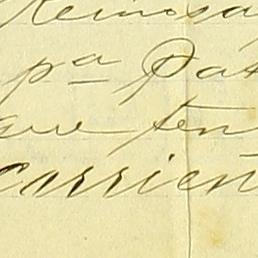 Remosa
pª Pat
que ten
Corrien